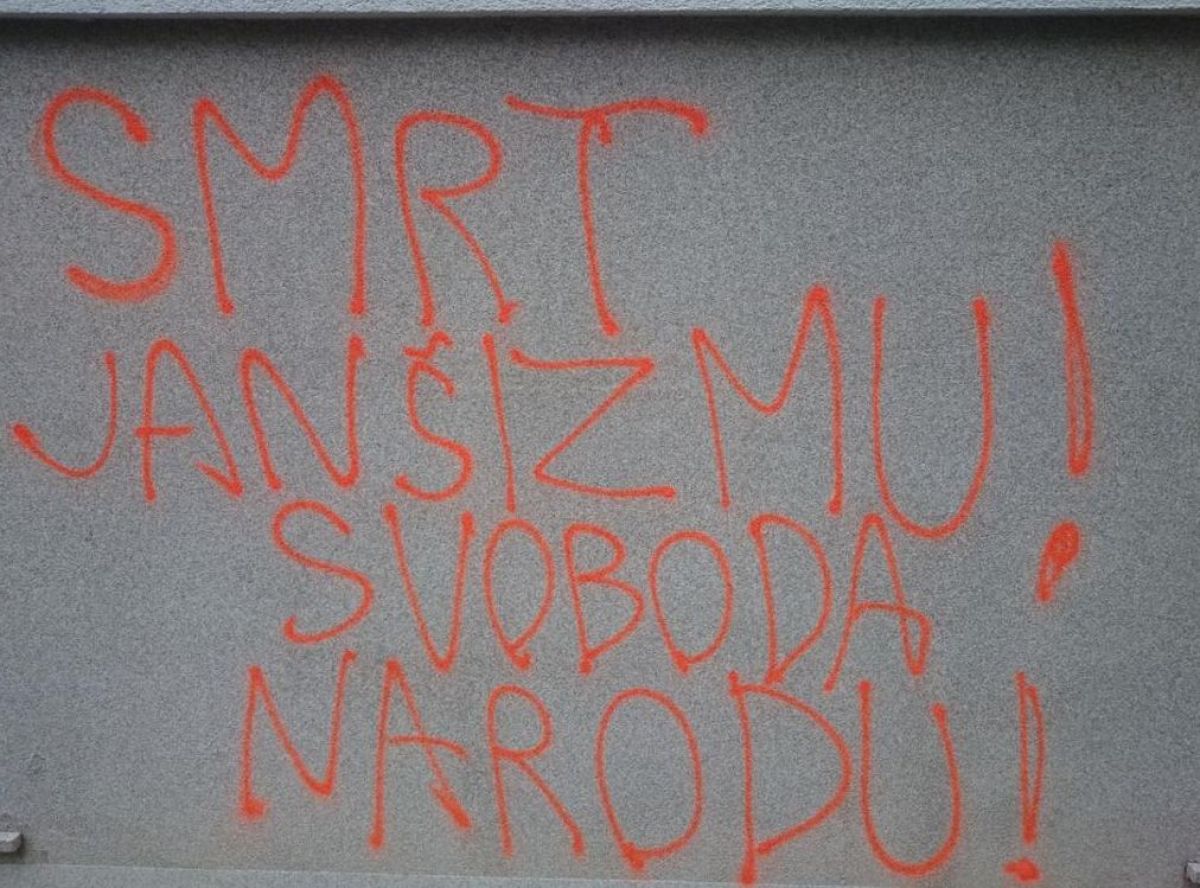 SMRT
JANŠIZMU!
SVOBODA
NARODU!